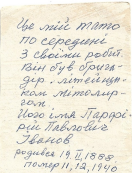 Це мій тато
по середині
З своїми робіт.
Він був брига-
дір. літейщи-
ком мітолур-
гом.
Його імя Парфі-
рій Павлович
Іванов
родився 19.II.1888
помер 11,12,1940